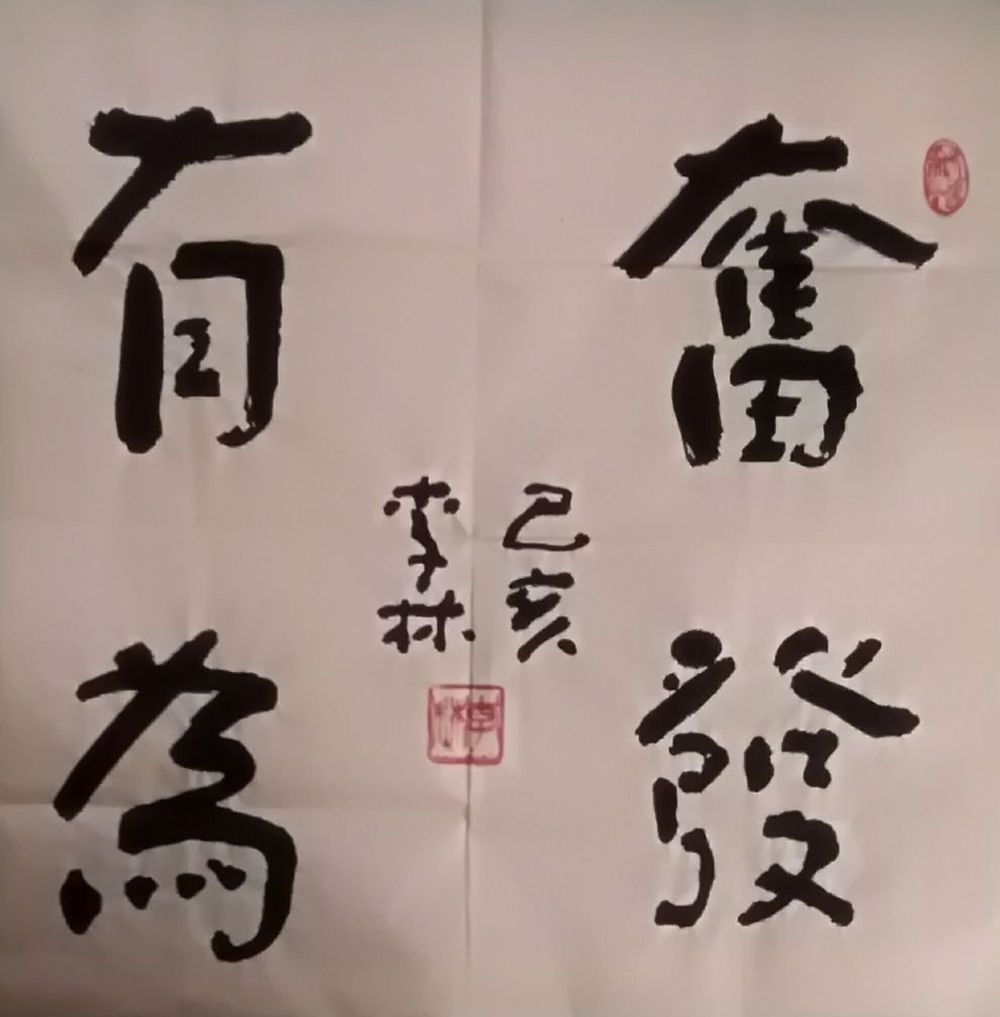 奮發
有為
己亥
李林